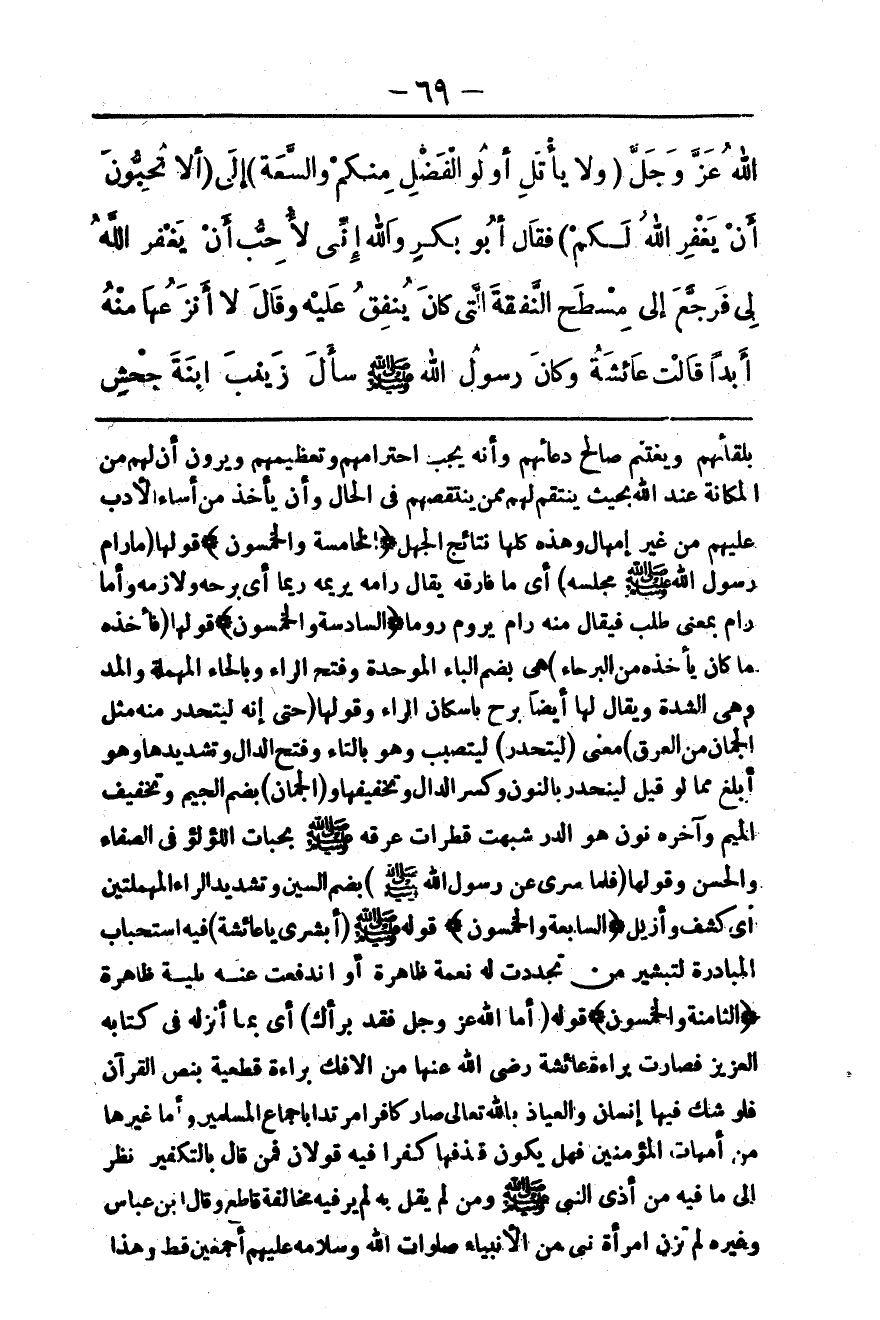 - ٦٩ -
اللهُ عَزَّ وَجَلَّ ( ولا يأْتَلِ أولُو الْفَضْلِ مِنكمْ والسَّعَة ) إلَى ( ألا تُحِبُّونَ
أنْ يَغْفِرِ اللهُ لَكمْ ) فقَال أبُو بكرٍ وَالله إنِّى لأُحِبُّ أنْ يَغْفر اللَّهُ
لِى فَرجَّعَ إلى مِسْطَح النَّفقةَ الَّتى كانَ يُنفِقُ عَليْه وقَالَ لا أنزَعُها مِنْهُ
أَبداً قَالتْ عَائشَةُ وكانَ رسولُ الله ﷺ سألَ زَينبَ ابنَةَ جحْشٍ
بلقائهم ويغتنم صالح دعائهم وأنه يجب احترامهم وتعظيمهم ويرون أن لهم من
المكانة عند الله بحيث ينتقم لهم ممن ينتقصهم فى الحال وأن يأخذ من أساء الأدب
عليهم من غير إمهال وهذه كلها نتائج الجهل ﴿الخامسة والخمسون﴾ قولها ( مارام
رسول الله ﷺ مجلسه ) أى ما فارقه يقال رامه يريمه ريما أى برحه ولازمه وأما
رام بمعنى طلب فيقال منه رام يروم روما ﴿السادسة والخمسون﴾ قولها ( فأخذه
ما كان يأخذه من البرحاء ) هى بضم الباء الموحدة وفتح الراء وبالحاء المهملة والمد
وهى الشدة ويقال لها أيضاً برح باسكان الراء وقولها ( حتى إنه ليتحدر منه مثل
الجمان من العرق ) معنى ( ليتحدر ) ليتصبب وهو بالتاء وفتح الدال وتشديدها وهو
أبلغ مما لو قيل لينحدر بالنون وكسر الدال وتخفيفها و ( الجمان ) بضم الجيم وتخفيف
الميم وآخره نون هو الدر شبهت قطرات عرقه ﷺ بحبات اللؤلؤ فى الصفاء
والحسن وقولها ( فلما سرى عن رسول الله ﷺ ) بضم السين وتشديد الراء المهملتين
أى كشف وأزيل ﴿السابعة والخمسون﴾ قوله ﷺ ( أبشرى يا عائشة ) فيه استحباب
المبادرة لتبشير من تجددت له نعمة ظاهرة أو اندفعت عنه بلية ظاهرة
﴿الثامنة والخمسون﴾ قوله ( أما الله عز وجل فقد برأك ) أى بما أنزله فى كتابه
العزيز فصارت براءة عائشة رضى الله عنها من الافك براءة قطعية بنص القرآن
فلو شك فيها إنسان والعياذ بالله تعالى صار كافرا مرتدا باجماع المسلمين وأما غيرها
من أمهات المؤمنين فهل يكون قذفها كفرا فيه قولان فمن قال بالتكفير نظر
إلى ما فيه من أذى النبى ﷺ ومن لم يقل به لم ير فيه مخالفة قاطع وقال ابن عباس
وغيره لم تزن امرأة نبى من الأنبياء صلوات الله وسلامه عليهم أجمعين قط وهذا